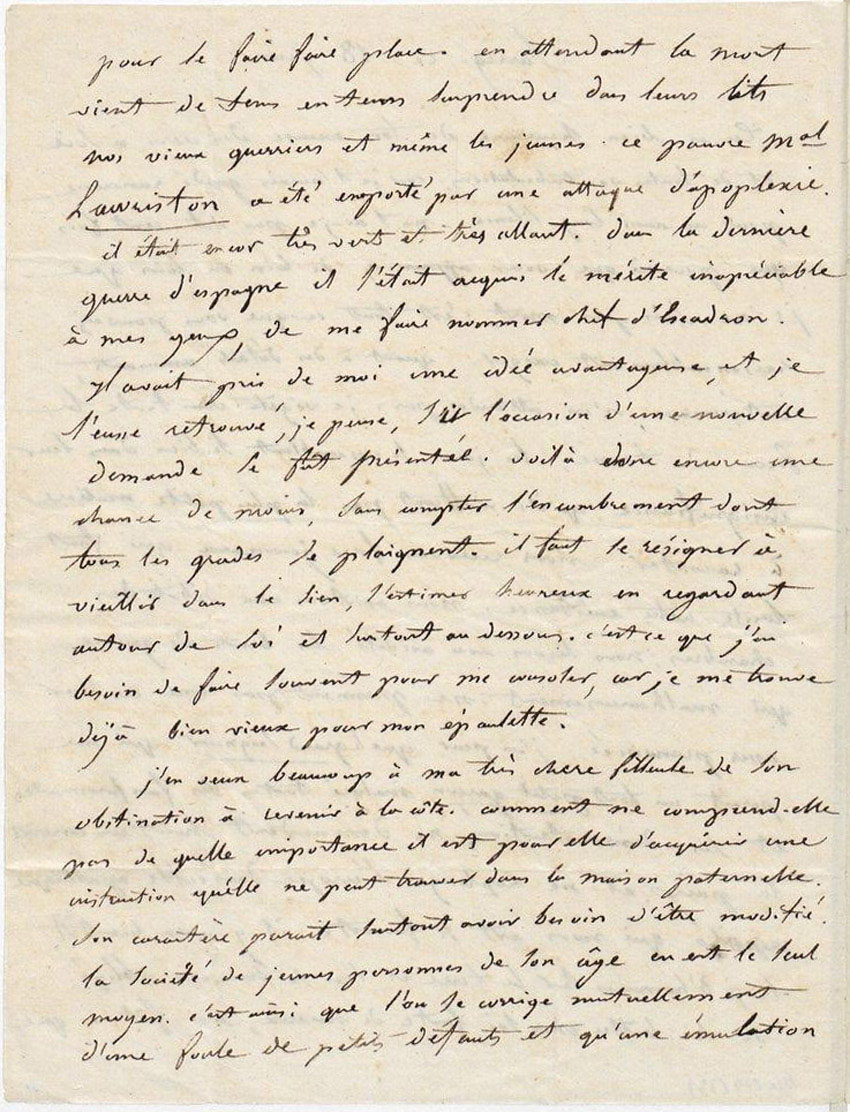 pour se faire faire place. en attendant la mort
vient de tems en tems surprendre dans leurs lits
nos vieux guerriers et même les jeunes. ce pauvre mal
Lauriston a été emporté par une attaque d'apoplexie.
il était encor très vert et très allant. dans la dernière
guerre d'espagne il s'était acquis le mérite inapréciable
à mes yeux, de me faire nommer chef d'Escadron.
Il avait pris de moi une idée avantageuse, et je
l'eusse retrouvé, je pense, si l'occasion d'une nouvelle
demande se fut présenté. voilà donc encore une
chance de moins, sans compter l'encombrement dont
tous les grades se plaignent. il faut se résigner à
vieillir dans le sien, s'estimer heureux en regardant
autour de soi et surtout au dessous. c'est ce que j'ai
besoin de faire souvent pour me consoler, car je me trouve
déjà bien vieux pour mon épaulette.
j'en veux beaucoup à ma très chere filleule de son
obstination à revenir à la côte. comment ne comprend-elle
pas de quelle importance il est pour elle d'acquérir une
instruction qu'elle ne peut trouver dans la maison paternelle.
son caractère parait surtout avoir besoin d'être modifié.
la société de jeunes personnes de son âge en est le seul
moyen. c'est ainsi que l'on se corrige mutuellement
d'une foule de petits defauts et qu'une émulation